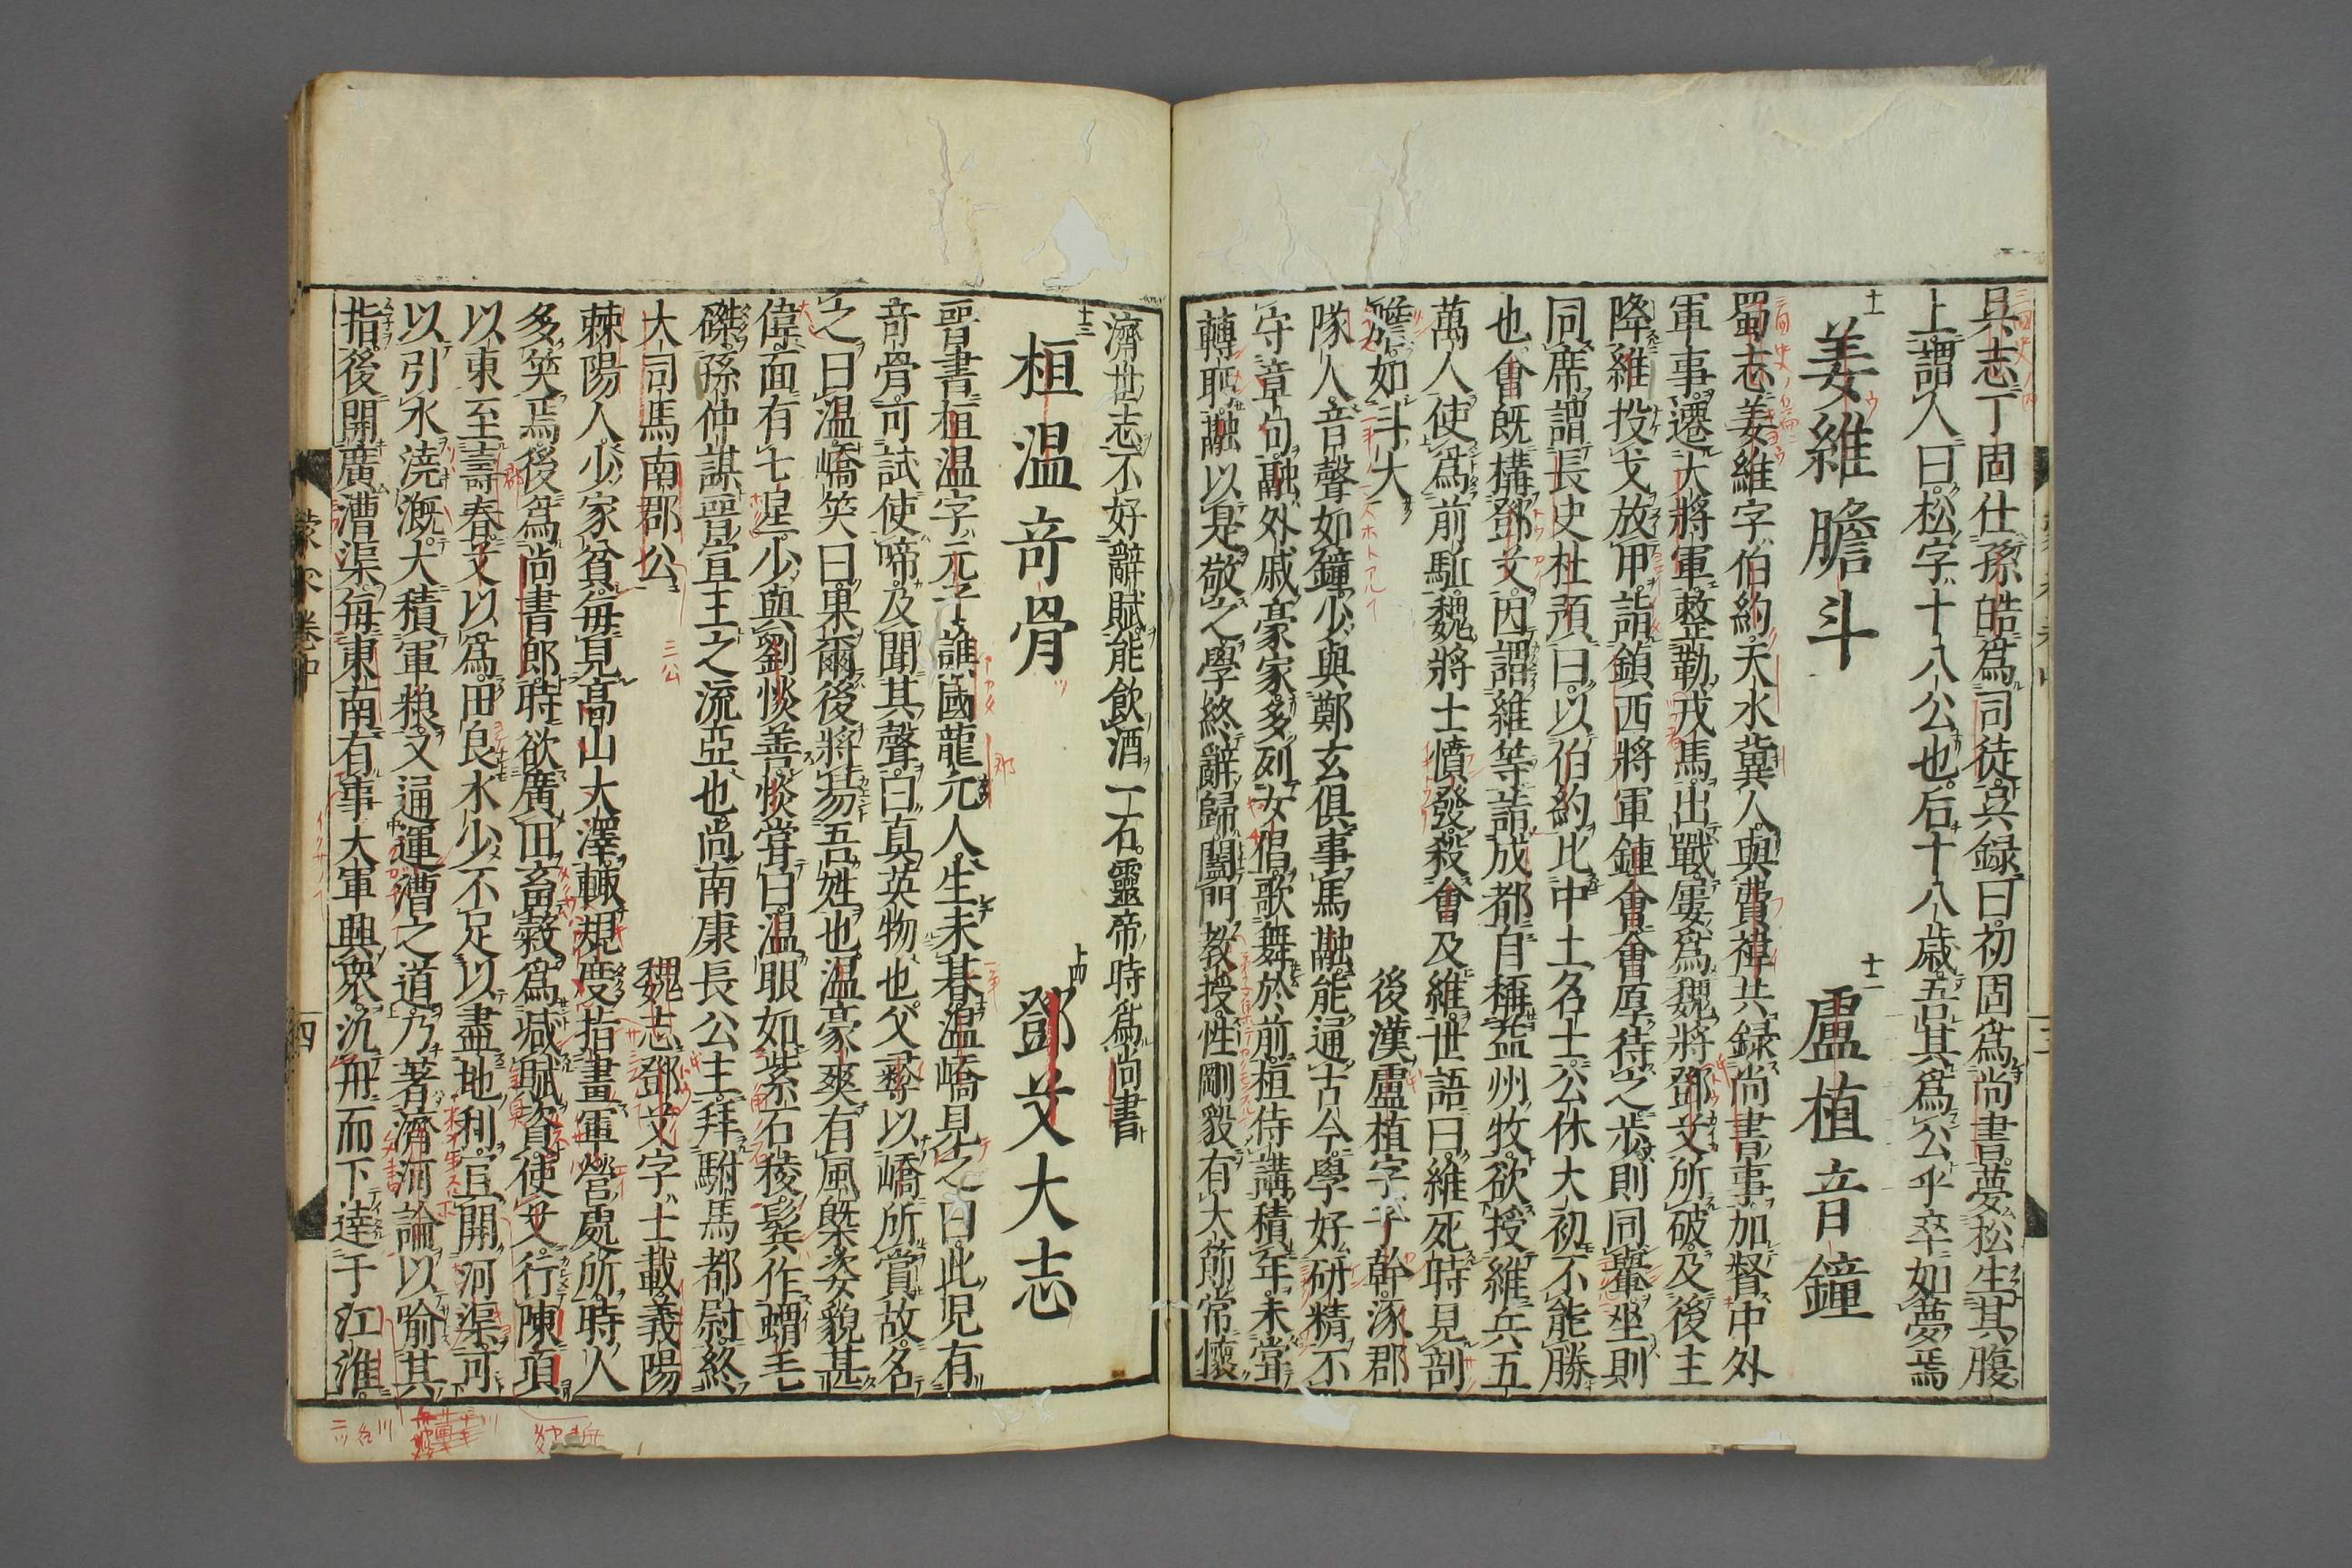 呉志丁固仕孫皓爲司徒呉録曰初固爲尚書夢松生其腹
上謂人曰松字十八公也后十八歲吾其爲公乎卒如夢焉
十一 姜維膽斗 十二 盧植音鐘
蜀志姜維字伯約天水冀人與費禕共録尚書事加督中外
軍事遷大將軍整勒戎馬出戰屢爲魏將鄧艾所破及後主
降維投戈放甲詣鎮西將軍鍾會會厚待之歩則同轝坐則
同席謂長史杜預曰以伯約比中土名士公休大初不能勝
也會既構鄧艾因謂維等詣成都自稱益州牧欲授維兵五
萬人使爲前駈魏將士憤發殺會及維世語曰維死時見剖
膽如斗大 後漢盧植字子幹涿郡
隊人音聲如鐘少與鄭玄倶事馬融能通古今學好研精不
守章句融外戚豪家多列女倡歌舞於前植侍講積年未甞
轉眄融以是敬之學終辭歸闔門教授性剛毅有大莭常懷
濟世志不好辭賦能飲酒一石靈帝時爲尚書
十三 桓温竒骨 十四 鄧艾大志
晋書桓温字元子譙國龍亢人生未朞温嶠見之曰此児有
竒骨可試使啼及聞其聲曰真英物也父彛以嶠所賞故名
之曰温嶠笑曰果爾後將昜吾姓也温豪爽有風槩姿貌甚
偉面有七星少與劉惔善惔甞曰温眼如紫石稜鬂作蝟毛
磔孫仲謀晋宣王之流亞也尚南康長公主拜駙馬都尉終
大司馬南郡公 魏志鄧艾字士載義陽
棘陽人少家貧毎見高山大澤輙規度指畫軍營處所時人
多笑焉後爲尚書郎時欲廣田畜穀爲減賊資使艾行陳項
以東至壽春艾以爲田良水少不足以盡地利宜開河渠可
以引水澆漑大積軍粮又通運漕之道乃著濟河論以喻其
指後開廣漕渠毎東南有事大軍興衆汎舟而下達于江淮
蒙求卷中 四